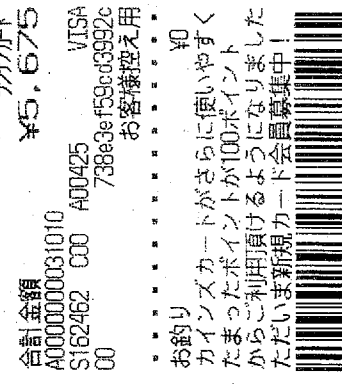 合計金額 ¥5,675
A0000000031010 VISA
S162462 C00 A00425
00 738e3ef59cd3992c
お客様控え用
お釣り ¥0
カインズカードがさらに使いやすく
たまったポイントが100ポイント
からご利用頂けるようになりました
ただいま新規カード会員募集中!